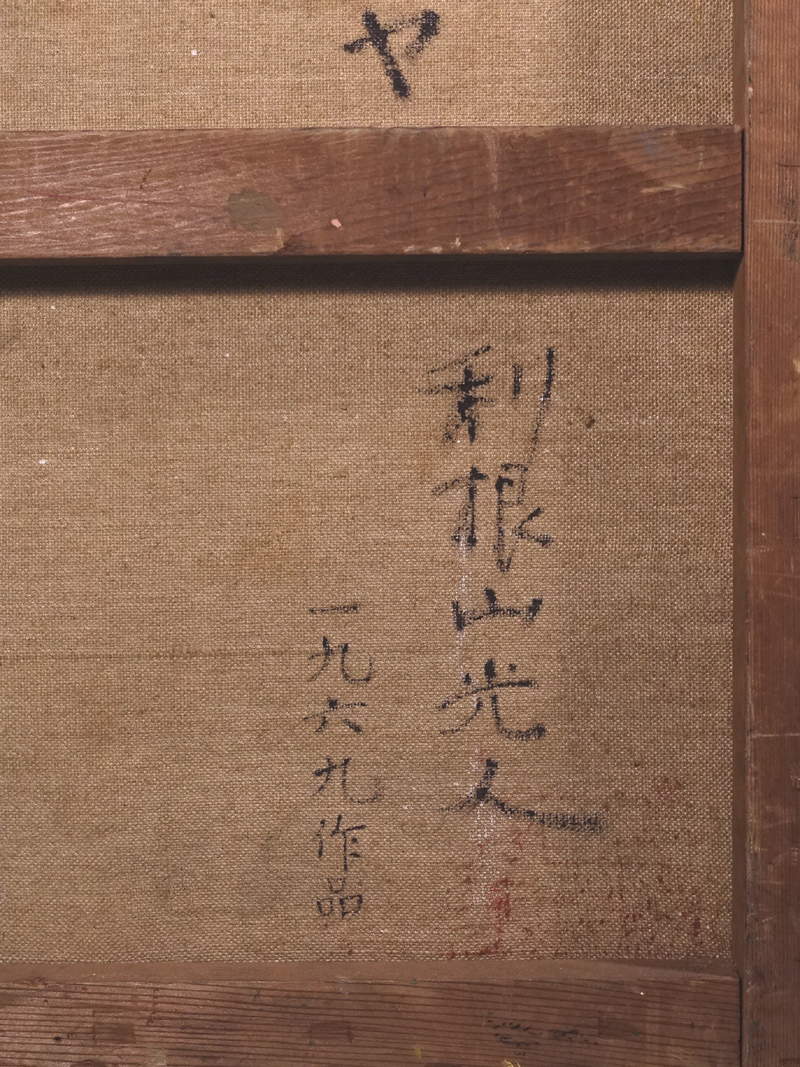 ヤ
利根山光人
一九六九作品